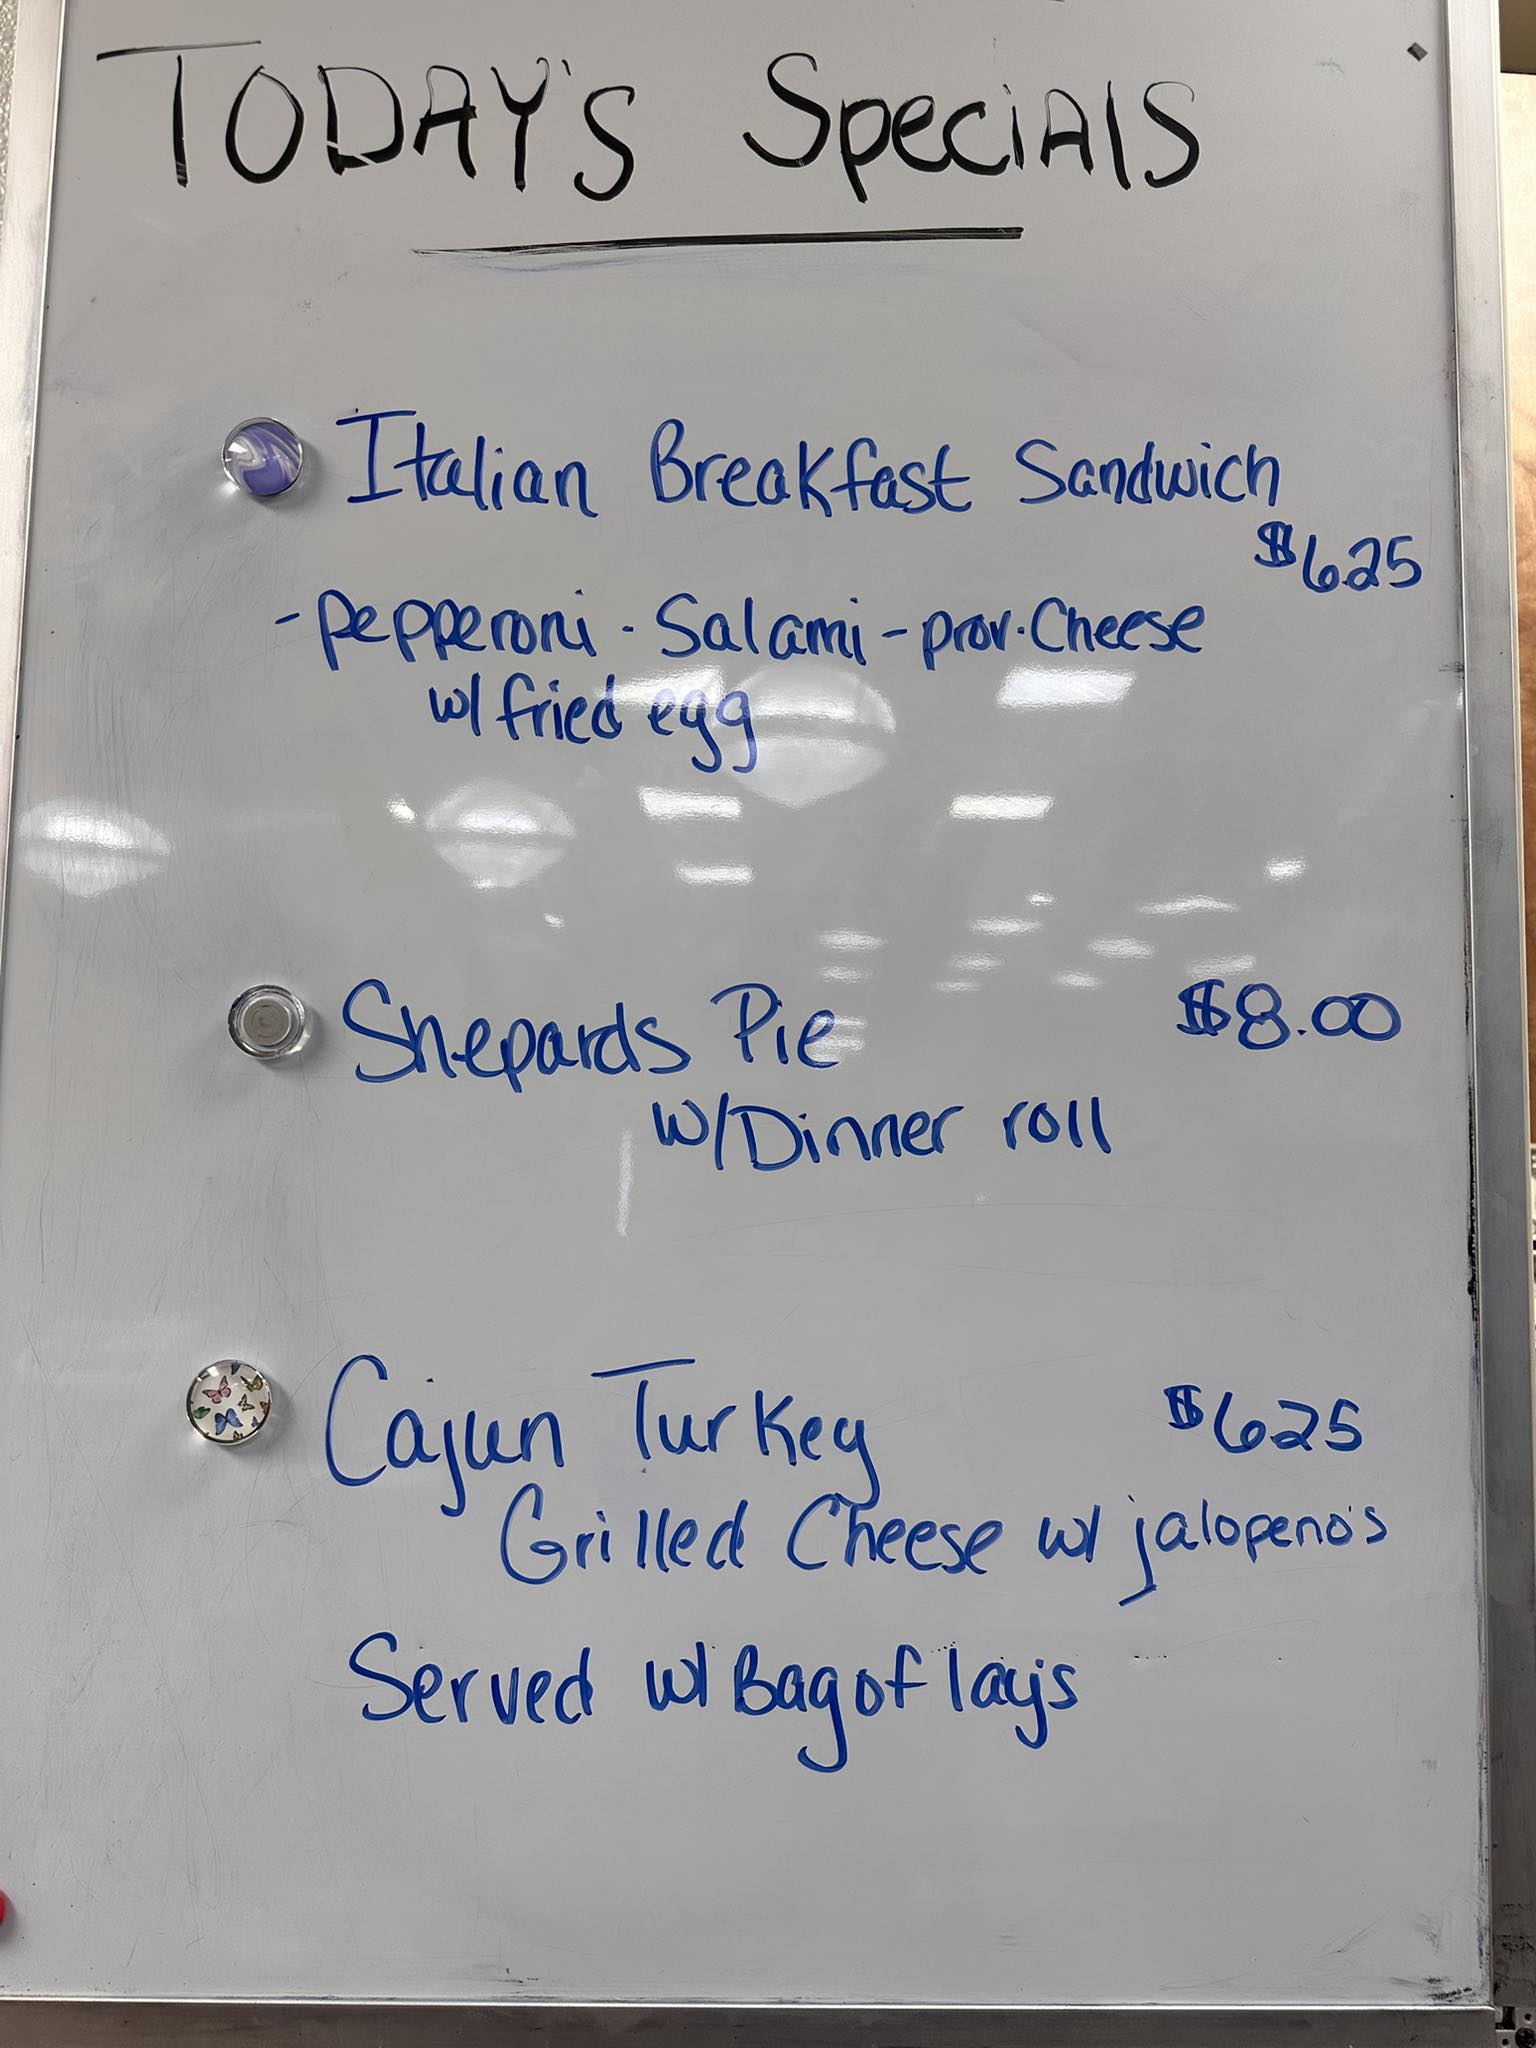 TODAY'S SpeciAlS
Italian Breakfast Sandwich
$6.25
- pepperoni - Salami - prov. Cheese
w/ fried egg
Shepards Pie $8.00
w/ Dinner roll
Cajun Turkey $6.25
Grilled Cheese w/ jalopeno's
Served w/ Bag of lay's